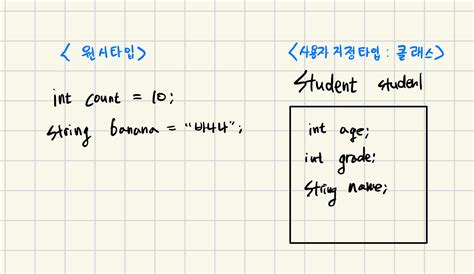 < 원시타입>
int count = 10;
string banana = "바나나";
<사용자 지정타입 : 클래스>
Student student
int age;
int grade;
String name;